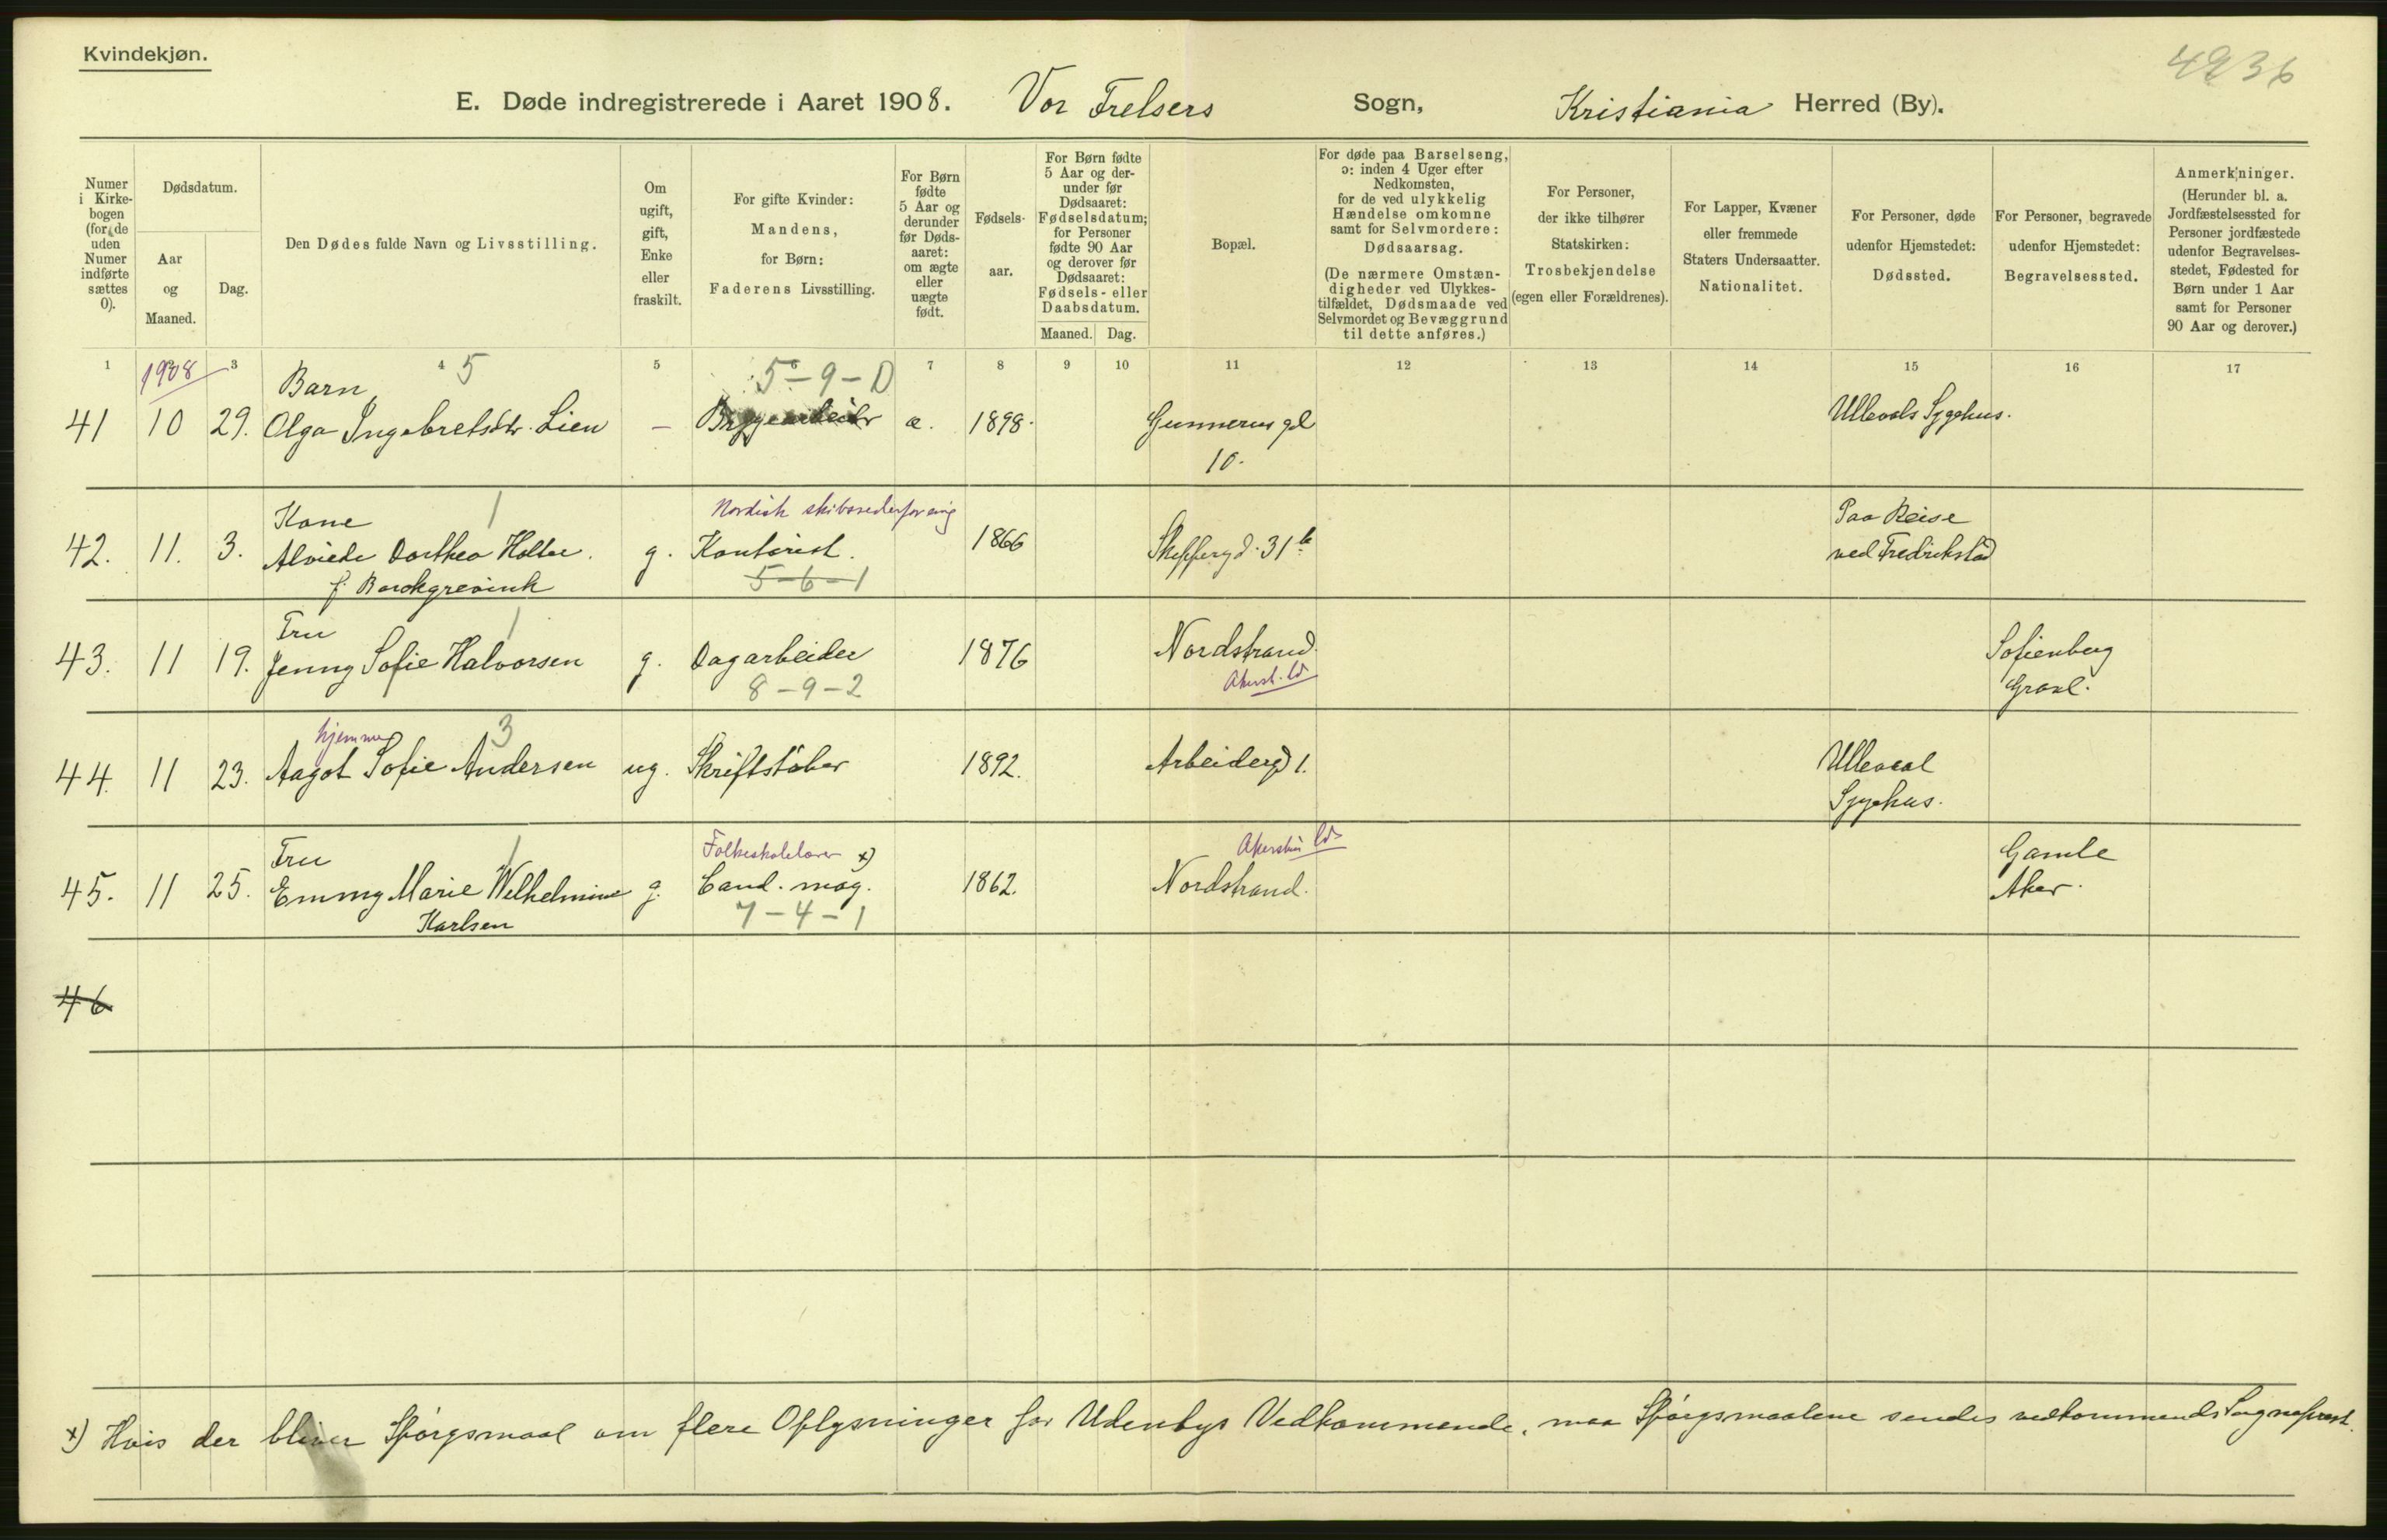 Kvindekjøn.
4236
E. Døde indregistrerede i Aaret 1908. Vor Frelsers Sogn, Kristiania Herred (By).
Numer i Kirkebogen (for de uden Numer indførte sættes 0).
Dødsdatum.
Aar og Maaned.
Dag.
Den Dødes fulde Navn og Livsstilling.
Om ugift, gift, Enke eller fraskilt.
For gifte Kvinder: Mandens, for Børn: Faderens Livsstilling.
For Børn fødte 5 Aar og derunder før Dødsaaret: om ægte eller uægte født.
Fødselsaar.
For Børn fødte 5 Aar og derunder før Dødsaaret: Fødselsdatum; for Personer fødte 90 Aar og derover før Dødsaaret: Fødsels- eller Daabsdatum.
Maaned. Dag.
Bopæl.
For døde paa Barselseng, ɔ: inden 4 Uger efter Nedkomsten, for de ved ulykkelig Hændelse omkomne samt for Selvmordere: Dødsaarsag.
(De nærmere Omstændigheder ved Ulykkestilfældet, Dødsmaade ved Selvmordet og Bevæggrund til dette anføres.)
For Personer, der ikke tilhører Statskirken: Trosbekjendelse (egen eller Forældrenes).
For Lapper, Kvæner eller fremmede Staters Undersaatter. Nationalitet.
For Personer, døde udenfor Hjemstedet: Dødssted.
For Personer, begravede udenfor Hjemstedet: Begravelsessted.
Anmerkninger.
(Herunder bl. a. Jordfæstelsessted for Personer jordfæstede udenfor Begravelsesstedet, Fødested for Børn under 1 Aar samt for Personer 90 Aar og derover.)
1 3 4 5 7 8 9 10 11 12 13 14 15 16 17
1908 5 5-9-D
Barn
41 10 29. Olga Ingebretsdtr. Lien - Bryggearbeider æ. 1898. Gunnerus gd 10. Ullevols Sygehus.
Kone 1 Nordisk skibsrederforening
42. 11. 3. Alviede Dorthea Holter. g. Kontorist. 1866 Skippergd. 31b Paa Reise ved Fredrikstad
f. Borchgrevink 5-6-1
Fru 1
43. 11 19. Jenny Sofie Halvorsen g. Dagarbeider 1876 Nordstrand. Sofienberg Gravl.
8-9-2 Akersh. ld
hjemme 3
44. 11 23. Aagot Sofie Andersen ug. Skriftstøber 1892. Arbeidergd 1. Ullevaal Sygehus.
Fru 1 Folkeskolelærer x) Akershus ld
45. 11 25. Emmy Marie Wilhelmine g. Cand. mag. 1862. Nordstrand. Gamle Aker.
Karlsen 7-4-1
46
x) Hvis der bliver Spørgsmaal om flere Oplysninger for Udenbys Vedkommende, maa Spørgsmaalene sendes vedkommende Sogneprest.